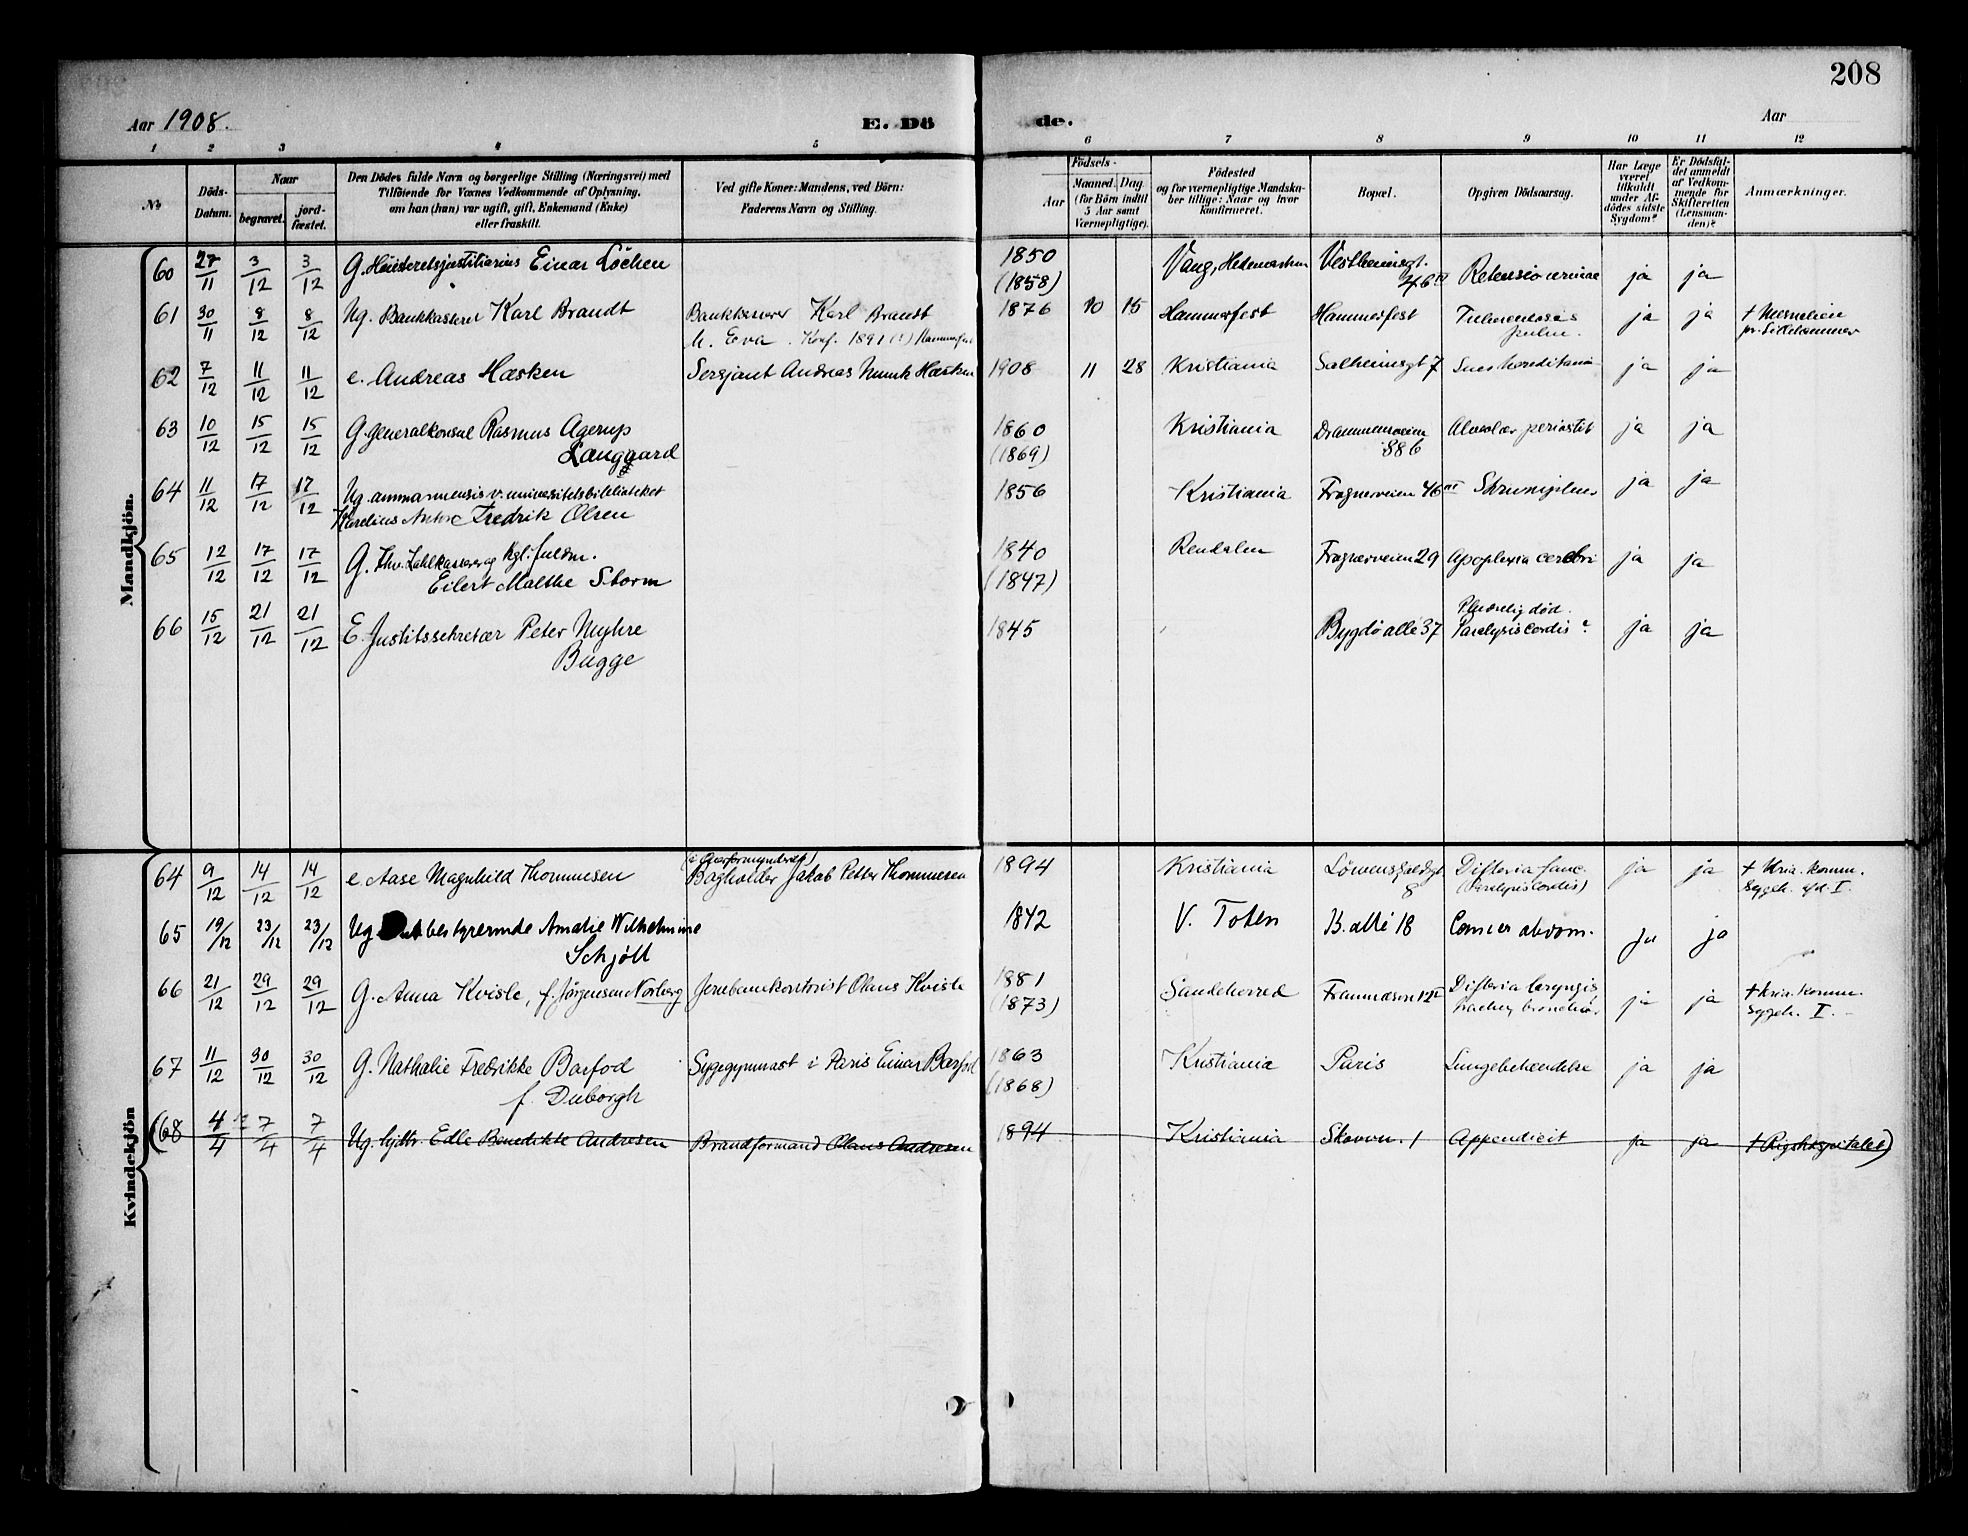 208
Aar 1908.
E. Dö
de.
Aar
1 2 3 4 5 6 7 8 9 10 11 12
No
Döds-Datum.
Naar
begravet.
jord-fæstet.
Den Dödes fulde Navn og borgerlige Stilling (Næringsvei) med
Tilföiende for Voxnes Vedkommende af Oplysning,
om han (hun) var ugift, gift, Enkemand (Enke)
eller fraskilt.
Ved gifte Koner: Mandens, ved Börn:
Faderens Navn og Stilling.
Födsels-
Aar
Maaned. Dag
(for Börn indtil
5 Aar samt
Værnepligtige).
Födested
og for værnepligtige Mandska-
ber tillige: Naar og hvor
Konfirmeret.
Bopæl.
Opgiven Dödsaarsag.
Har Læge
været
tilkaldt
under Af-
dödes sidste
Sygdom?
Er Dödsfal-
det anmeldt
af Vedkom-
mende for
Skifteretten
(Lensman-
den)?
Anmærkninger.
Mandkjön.
60 27/11 3/12 3/12 G. Einar Löchen 1850 Vang, Hedemarken Vestheimsgt. Retensio urinae ja ja
(1858) 46 IV
61 30/11 8/12 8/12 Ug. Bankkasserer Karl Brandt Bankkasserer Karl Brandt 1876 10 15 Hammerfest Hammerfest Tuberculosis ja ja † Mesnalien
h. Eva. Konf. 1891 (?) Hammerfest pulm. pr. Lillehammer
62 7/12 11/12 11/12 e. Andreas Hæsken Sersjant Andreas Munk Hæsken 1908 11 28 Kristiania Solheimsgt 7 ja ja
63 10/12 15/12 15/12 G. generalkonsul Rasmus Agerup 1860 Kristiania Drammensveien Alveolær periostit ja ja
Langgaard (1869) 88 b
64 11/12 17/12 17/12 Ug. amanuensis v. universitetsbiblioteket 1856 Kristiania Frognerveien 46 III ja ja
Karelius Anton Fredrik Olsen
65 12/12 17/12 17/12 G. Kgl. fuldm. 1840 Rendalen Frognerveien 29 Apoplexia cerebri ja ja
Eilert Malthe Storm (1847)
66 15/12 21/12 21/12 E. Justitssekretær Peter Myhre 1845 Bygdö alle 37 Pludselig död. ja ja
Bugge Paralysis Cordis?
Kvindekjön
64 9/12 14/12 14/12 e. Aase Magnhild Thommesen (i Overformynderiet) 1894 Kristiania Löwenskioldsgt Difteria fauc. ja ja † Kria. komm.
Bogholder Jakob Petter Thommesen 8 (Paralysis Cordis) sygeh. afd. I.
65 19/12 23/12 23/12 Ug. bestyrerinde Amalie Wilhelmine 1842 V. Toten B. allé 18 Cancer abdom. ja ja
Schjöll
66 21/12 29/12 29/12 G. Anna Kvisle, f. Jörgensen Norberg Jernbanekontorist Olaus Kvisle 1881 Sandeherred Framnæsvn 12 I Difteria laryngis ja ja † Kria. komm.
(1873) sygeh. I.
67 11/12 30/12 30/12 G. Nathalie Fredrikke Barfod Sygegymnast i Paris Einar Barfod 1863 Kristiania Paris Lungebetændelse ja ja
f. Duborgh (1868)
(68 4/4 7/4 7/4 Ug. Edle Benedikte Andresen Brandformand Olaus Andresen 1894 Kristiania Skovvn. 1 Appendicit ja ja † Rigshospitalet)